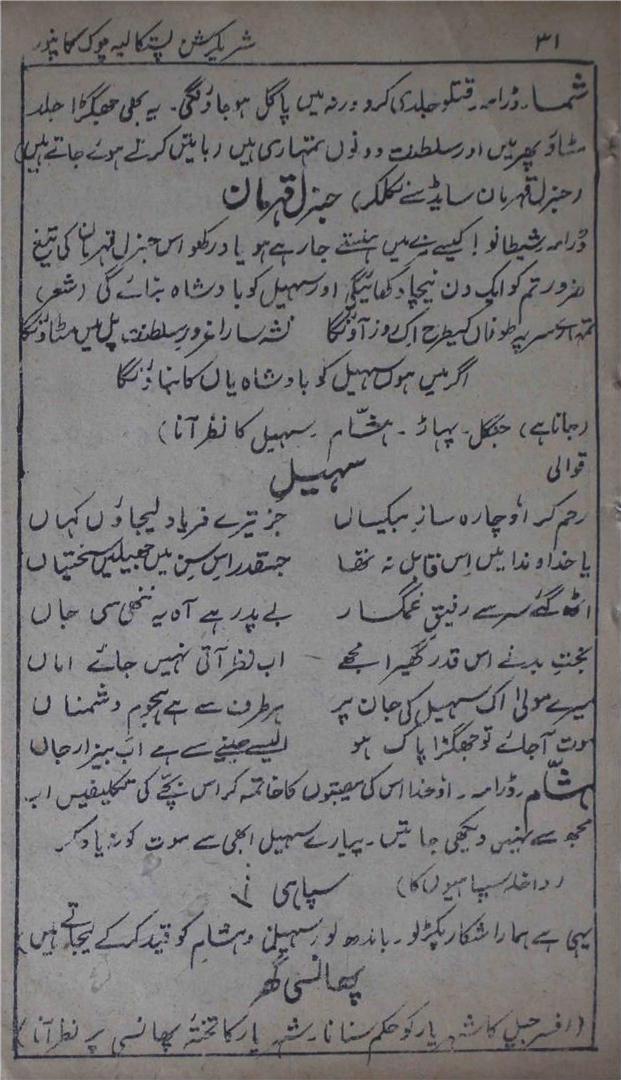 ۳۱
شریکرشن پستکالیہ چوک کانپور
شما۔ (ڈرامہ) قتلو جلدی کرو ورنہ میں پاگل ہو جاؤنگی۔ یہ بھی جھگڑا جلد
مٹاؤ پھر میں اور سلطنت دونوں تمہاری ہیں (باتیں کرتے ہوئے جاتے ہیں)
(جنرل قہرمان سایڈ سے نکلکر) جنرل قہرمان
ڈرامہ۔ شیطانو! کیسے ہنستے جا رہے ہو یاد رکھو اس جنرل قہرمان کی تیغ
ضرور تم کو ایک دن نیچا دکھائیگی اور سہیل کو بادشاہ بنائے گی (شعر)
تمہارے سر پہ طوفاں کیطرح اک روز آؤنگا نشہ سارا غرور سلطنت پل میں مٹاؤنگا
اگر میں ہوں سہیل کو بادشاہ یاں کا بناؤنگا
(جاتا ہے) جنگل۔ پہاڑ۔ ہشّام۔ سہیل کا نظر آنا)
قوالی
سہیل
رحم کر او چارہ ساز بیکساں جز تیرے فریاد لیجاؤں کہاں
یا خداوندا میں اس قابل نہ تھا جسقدر اس سن میں جھیلیں سختیاں
اٹھ گئے سر سے رفیق غمگسار بے پدر ہے آہ یہ ننھی سی جاں
بخت بد نے اس قدر گھیرا مجھے اب نظر آتی نہیں جائے اماں
میرے مولیٰ اک سہیل کی جان پر ہر طرف سے ہے ہجوم دشمناں
موت آجائے تو جھگڑا پاک ہو ایسے جینے سے ہے اب بیزار جاں
ہشّام (ڈرامہ)۔ او خدا اس کی مصیبتوں کا خاتمہ کر اس بچے کی تکلیفیں اب
مجھ سے نہیں دیکھی جاتیں۔ پیارے سہیل ابھی سے موت کو نہ یاد کر
(داخلہ سپاہیوں کا) سپاہی
یہی ہے ہمارا شکار پکڑ لو۔ باندھ لو (سہیل و ہشام کو قید کرکے لیجاتے ہیں)
پھانسی گھر
(افسر جیل کا شہریار کو حکم سنانا۔ شہریار کا تختۂ پھانسی پر نظر آنا)